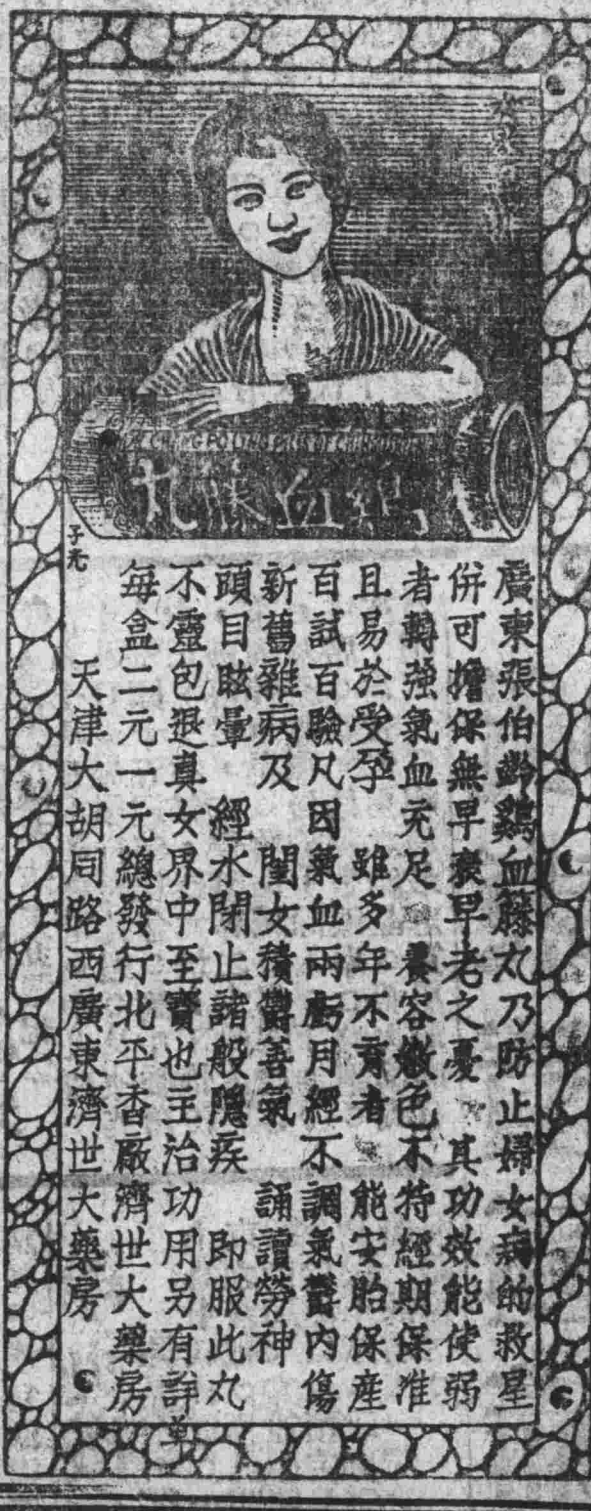 女界明星
CHANG PO LING PILLS OF CHI HSUEH TENG
鷄血藤丸
子光
廣東張伯齡鷄血藤丸乃防止婦女病的救星
併可擔保無早衰早老之憂 其功效能使弱
者轉強氣血充足 養容嫩色不特經期保准
且易於受孕 雖多年不育者 能安胎保產
百試百驗凡因氣血兩虧月經不調氣鬱內傷
新舊雜病及 閨女積鬱善氣 誦讀勞神
頭目眩暈 經水閉止諸般隱疾 即服此丸
不靈包退真女界中至寶也主治功用另有詳單
每盒二元一元總發行北平香廠濟世大藥房
天津大胡同路西廣東濟世大藥房